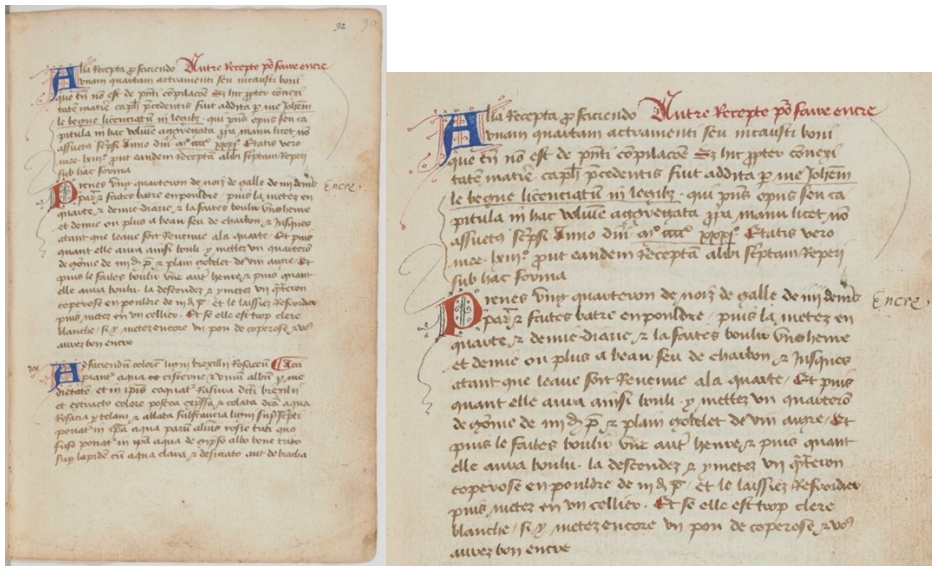 92 90
Alia Recepta p̱ faciendo Autre Recepte po᷑ faire encre
unam quartam actramenti seu incausti boni
que tn̄ nō est de p̄nti cōpilacōe Sz hic ꝓpter cōnexi
tatem matie᷑ capl̄i p̄cedentis fuit addita ꝑ me Joħem
le begue licenciatū in legibꝫ. qui p̄ns opus seu ca
pitula in hac volūie aggregata ꝓpa manu licet nō
assuetꝰ sc̄psi Anno dn̄i mº iiiiᶜ xxxjº. Etatis vero
mee. lxiijº. prout eandem Receptā alibi sc̄ptam Reperi
sub hac forma
Prenes vng quarteron de noiz de galle de iiij den̄
par᷑ & faites batre en pouldre, puis la metez en
quarte & demie diaue, & la faites boulir vne heure
et demie ou plus a beau feu de charbon, & Jusques
atant que leaue soit Reuenue a la quarte, Et puis
quant elle aura ainsi bouli. y mettez vn quarterō
de gōme de iiij d̄ p̄. & plain gobelet de vin aigre, Et
puis le faites boulir vne aut᷑ heure, & puis quant
elle aura boulu. la descendez & y metez vn q̄rteron
coperose en pouldre de iij d̄ p̄ et le laissiez Refroidier
puis metez en vn cellier. Et se elle est trop clere
blanche, si y metez encore vn pou de coperose, & voꝰ
aurez bon encre
Encre
Ad faciendū colorē ligni brexillii Rosaceū Ca
piant᷑ aqua cisterne & vinū albū ꝑ me
dietatē. et in ip̄is coquat᷑ Rasura dc̄i brexilii
et extracto colore postea exp̄ssa & colata dc̄a aqua
Rosacea ꝑ telam, & ablata substancia ligni
ponat᷑ in ip̄a aqua parū alumīs
ponat᷑ in ip̄a aqua de gipso albo bene trito
sup lapidē cū aqua clara, & desiccato aut de
Alia Recepta p̱ faciendo Autre Recepte po᷑ faire encre
unam quartam actramenti seu incausti boni
que tn̄ nō est de p̄nti cōpilacōe Sz hic ꝓpter cōnexi
tatem matie᷑ capl̄i p̄cedentis fuit addita ꝑ me Joħem
le begue licenciatū in legibꝫ. qui p̄ns opus seu ca
pitula in hac volūie aggregata ꝓpa manu licet nō
assuetꝰ sc̄psi Anno dn̄i mº iiiiᶜ xxxjº. Etatis vero
mee. lxiijº. prout eandem Receptā alibi sc̄ptam Reperi
sub hac forma
Prenes vng quarteron de noiz de galle de iiij den̄
par᷑ & faites batre en pouldre, puis la metez en
quarte & demie diaue, & la faites boulir vne heure
et demie ou plus a beau feu de charbon, & Jusques
atant que leaue soit Reuenue a la quarte, Et puis
quant elle aura ainsi bouli. y mettez vn quarterō
de gōme de iiij d̄ p̄. & plain gobelet de vin aigre, Et
puis le faites boulir vne aut᷑ heure, & puis quant
elle aura boulu. la descendez & y metez vn q̄rteron
coperose en pouldre de iij d̄ p̄ et le laissiez Refroidier
puis metez en vn cellier. Et se elle est trop clere
blanche, si y metez encore vn pou de coperose, & voꝰ
aurez bon encre
Encre